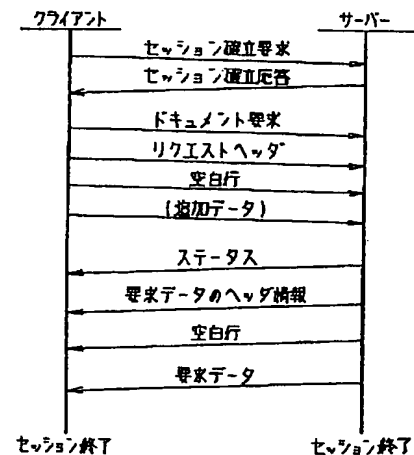 クライアント
サーバー
セッション確立要求
セッション確立応答
ドキュメント要求
リクエストヘッダ
空白行
(追加データ)
ステータス
要求データのヘッダ情報
空白行
要求データ
セッション終了
セッション終了